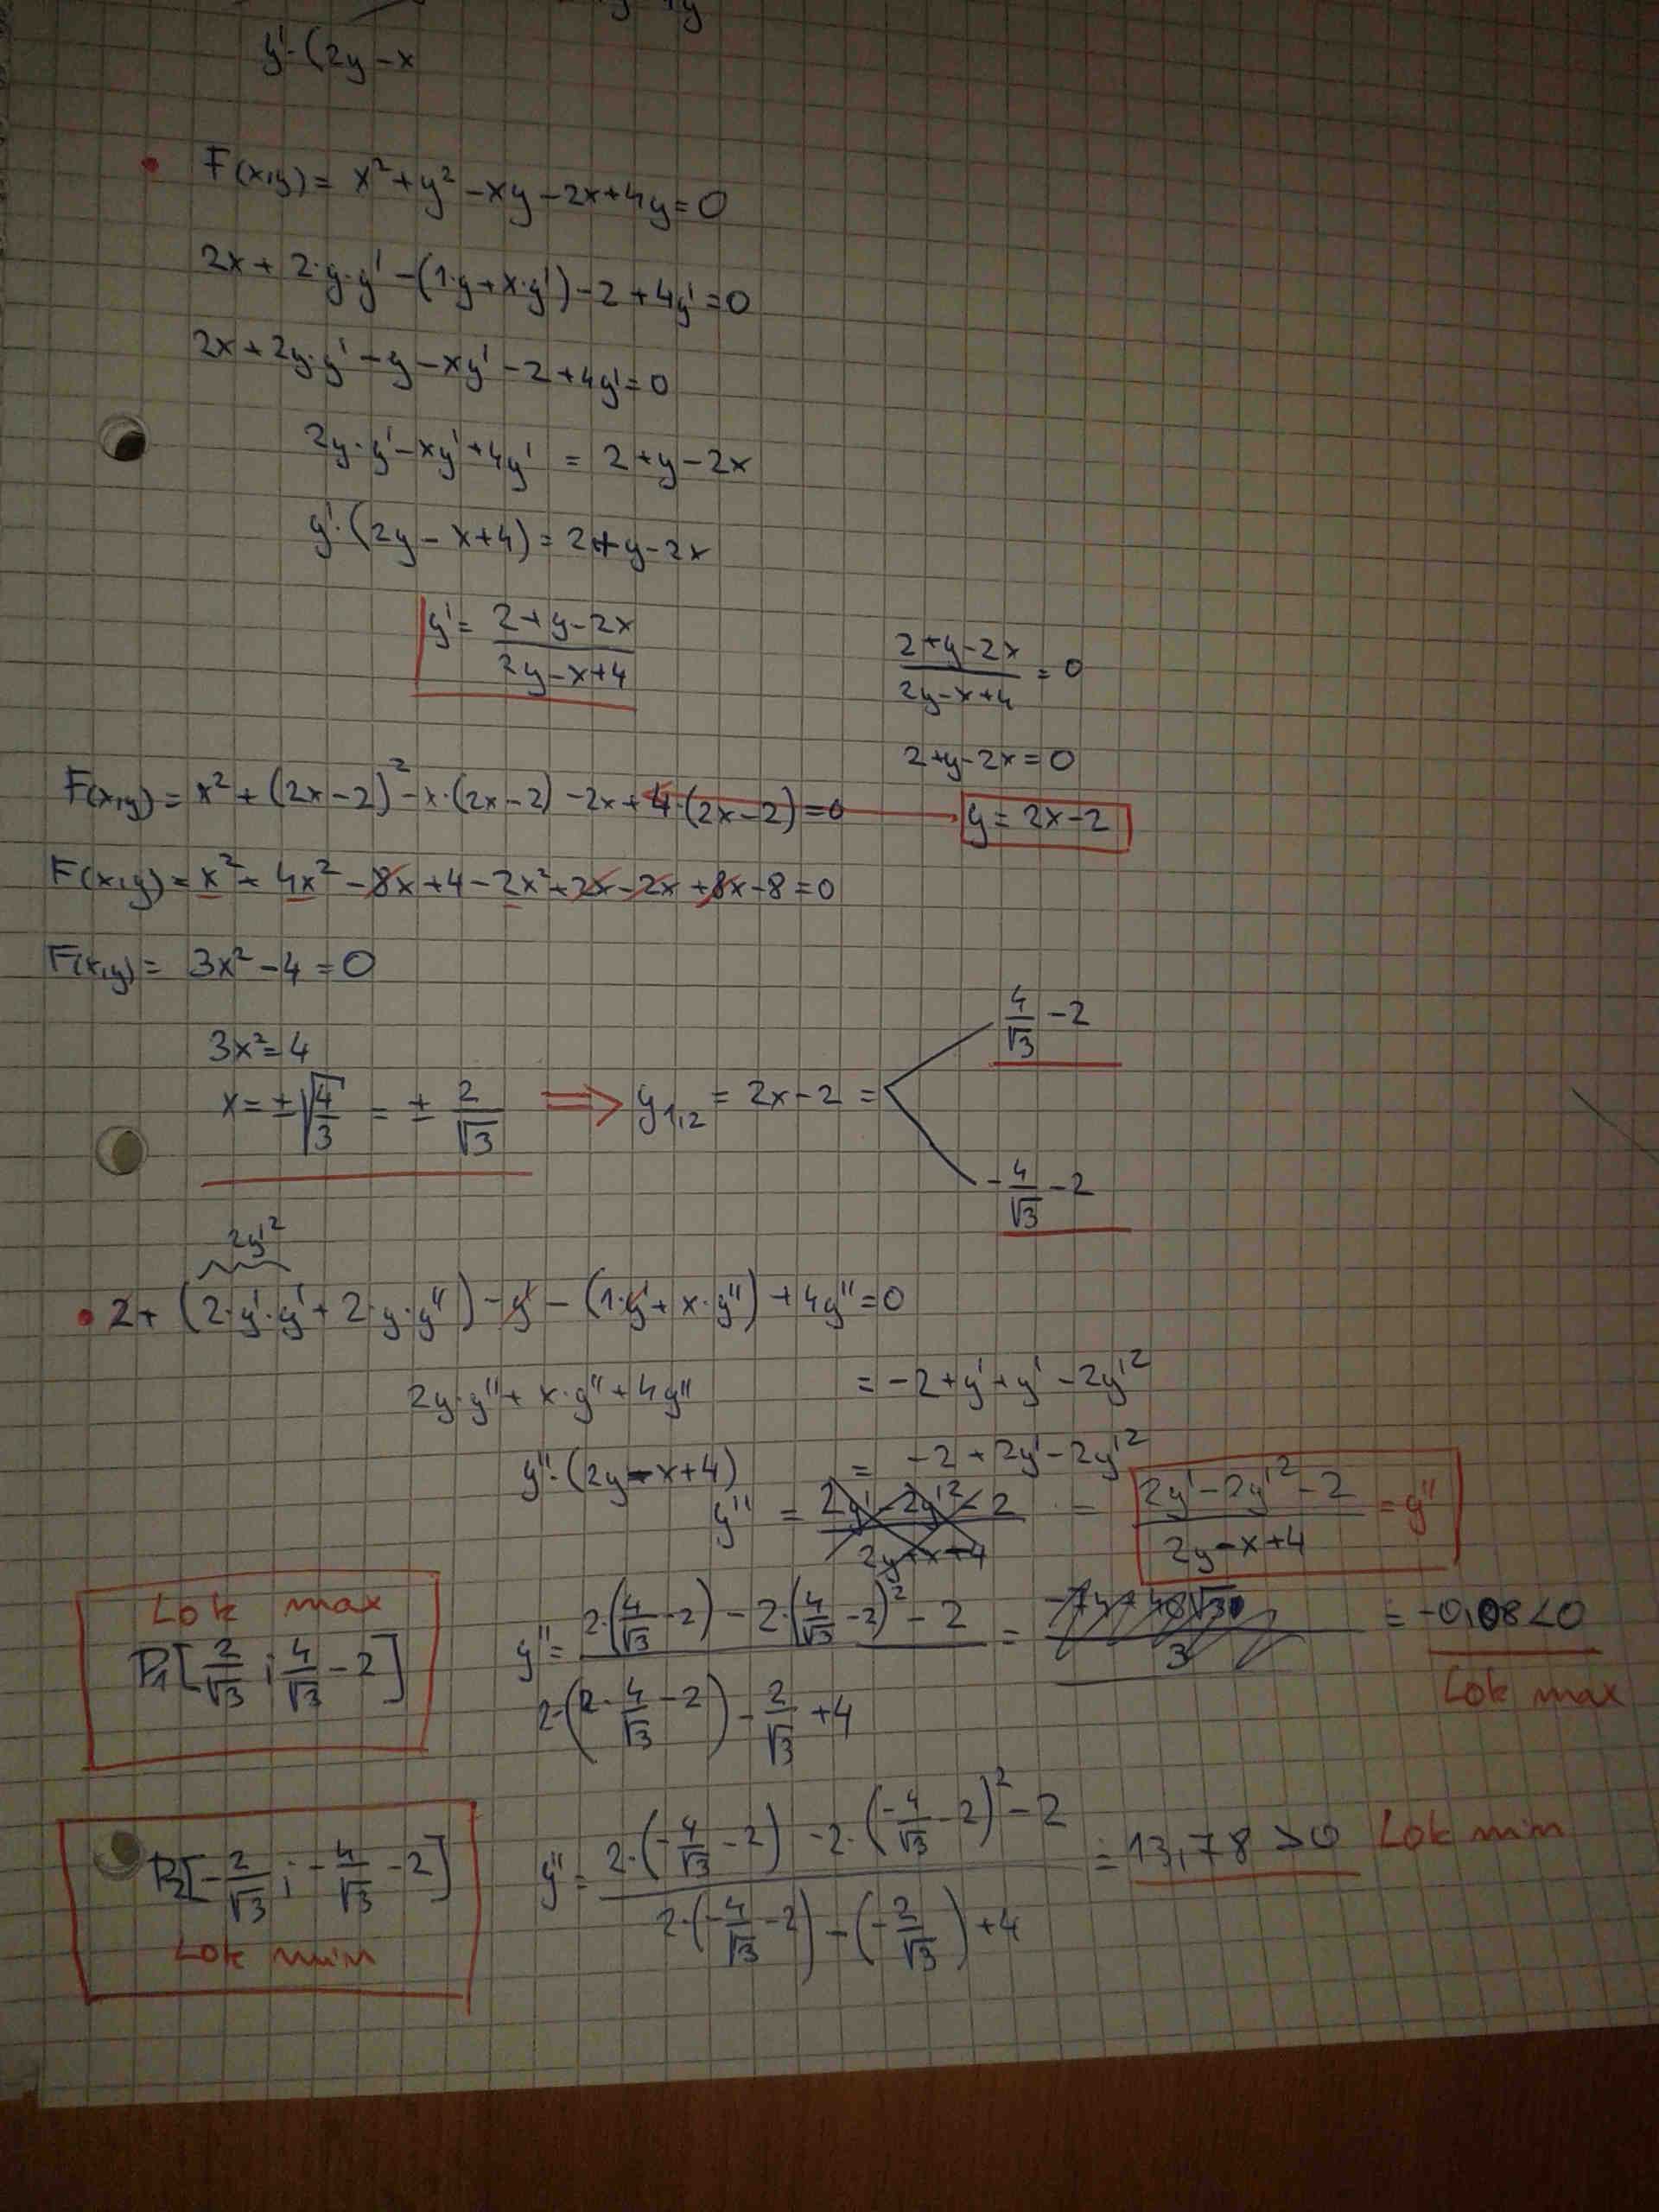 y'·(2y-x
F(x,y) = x²+y²-xy-2x+4y=0
2x+2·y·y'-(1·y+x·y')-2+4y'=0
2x+2y·y'-y-xy'-2+4y'=0
2y·y'-xy'+4y' = 2+y-2x
y'·(2y-x+4)=2+y-2x
y'= (2+y-2x)/(2y-x+4)
(2+y-2x)/(2y-x+4) = 0
2+y-2x=0
F(x,y) = x²+(2x-2)²-x·(2x-2)-2x+4·(2x-2)=0
y=2x-2
F(x,y)= x²+4x²-8x+4-2x²+2x-2x+8x-8=0
F(x,y)= 3x²-4=0
3x²=4
x=±√(4/3) = ± 2/√3 ⟹ y1,2 = 2x-2 =
4/√3 -2
-4/√3 -2
2y'²
2+(2·y'·y'+2·y·y'')-y'-(1·y'+x·y'')+4y''=0
2y·y''+x·y''+4y'' = -2+y'+y'-2y'²
y''·(2y-x+4) = -2+2y'-2y'²
y'' = (2y'-2y'²-2)/(2y+x+4) = (2y'-2y'²-2)/(2y-x+4) = y''
Lok max
P1[2/√3 ; 4/√3 -2]
y''= (2·(4/√3 -2)-2·(4/√3 -2)²-2)/(2·(2·4/√3 -2)-2/√3 +4) = = -0,08<0
Lok max
P2[-2/√3 ; -4/√3 -2]
Lok min
y''= (2·(-4/√3 -2)-2·(-4/√3 -2)²-2)/(2·(-4/√3 -2)-(-2/√3)+4) = 13,78 >0 Lok min